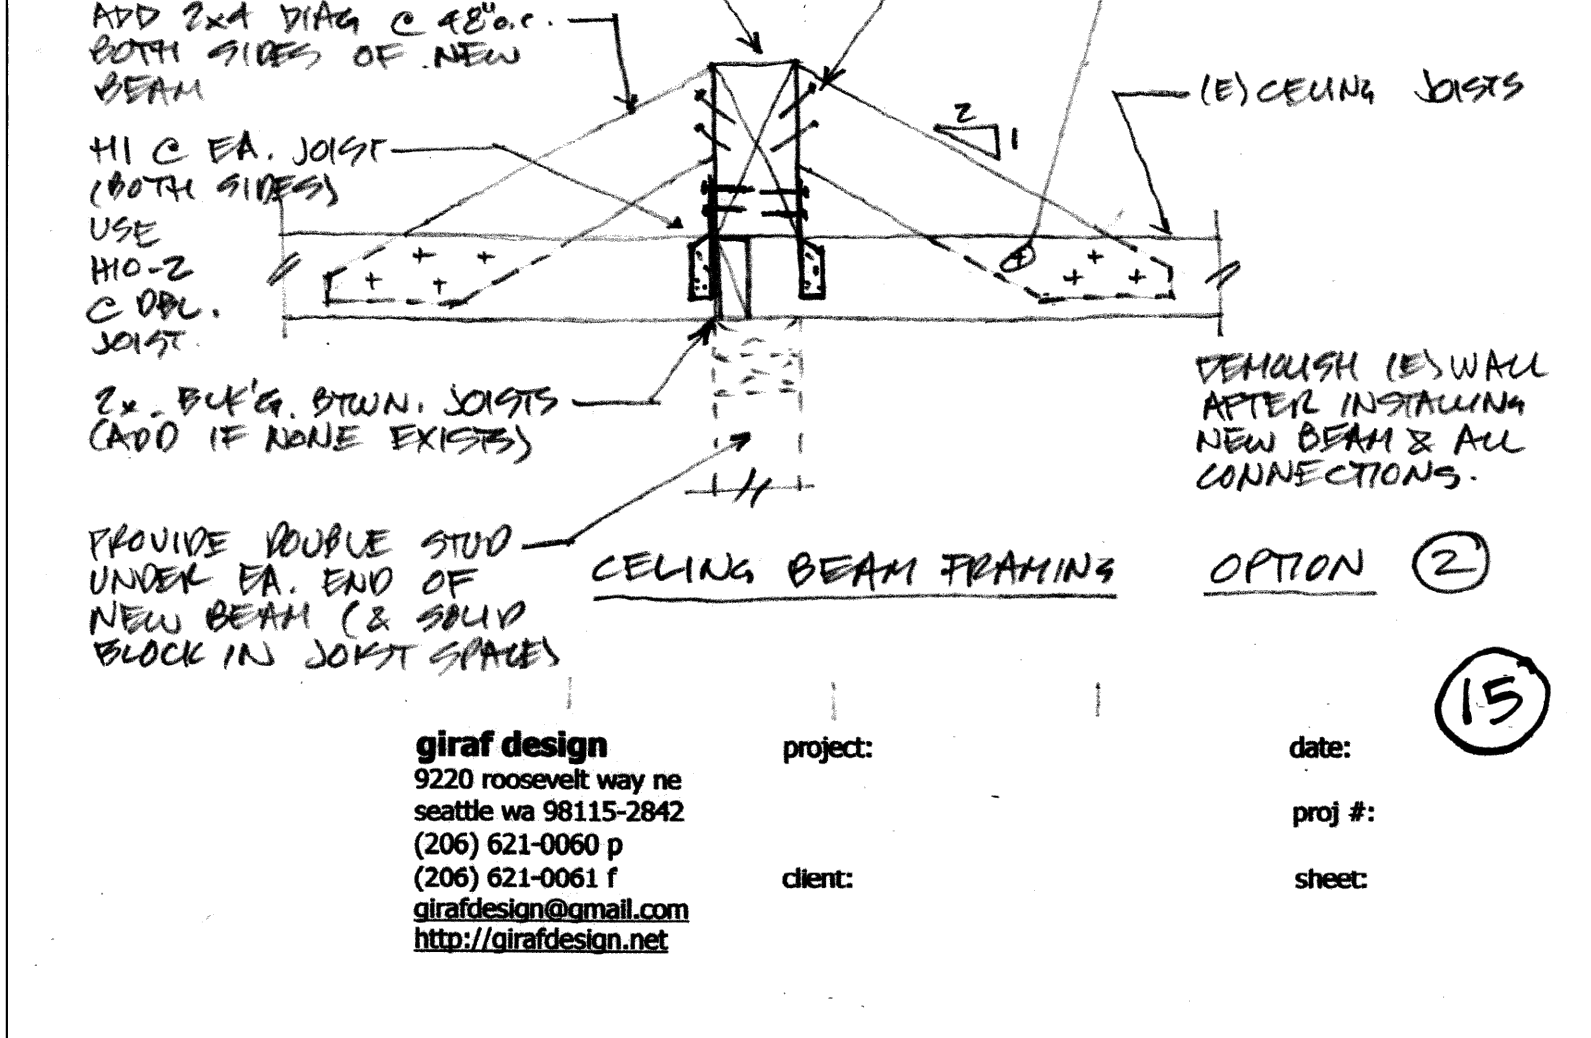 ADD 2x4 DIAG @ 48" o.c.
BOTH SIDES OF NEW
BEAM
H1 @ EA. JOIST
(BOTH SIDES)
USE
H10-2
@ DBL.
JOIST
2x BLK'G. BTWN. JOISTS
(ADD IF NONE EXISTS)
PROVIDE DOUBLE STUD
UNDER EA. END OF
NEW BEAM (& SOLID
BLOCK IN JOIST SPACE)
2
1
(E) CELING JOISTS
DEMOLISH (E) WALL
AFTER INSTALLING
NEW BEAM & ALL
CONNECTIONS.
CELING BEAM FRAMING OPTION 2
15
giraf design
9220 roosevelt way ne
seattle wa 98115-2842
(206) 621-0060 p
(206) 621-0061 f
girafdesign@gmail.com
http://girafdesign.net
project:
client:
date:
proj #:
sheet: